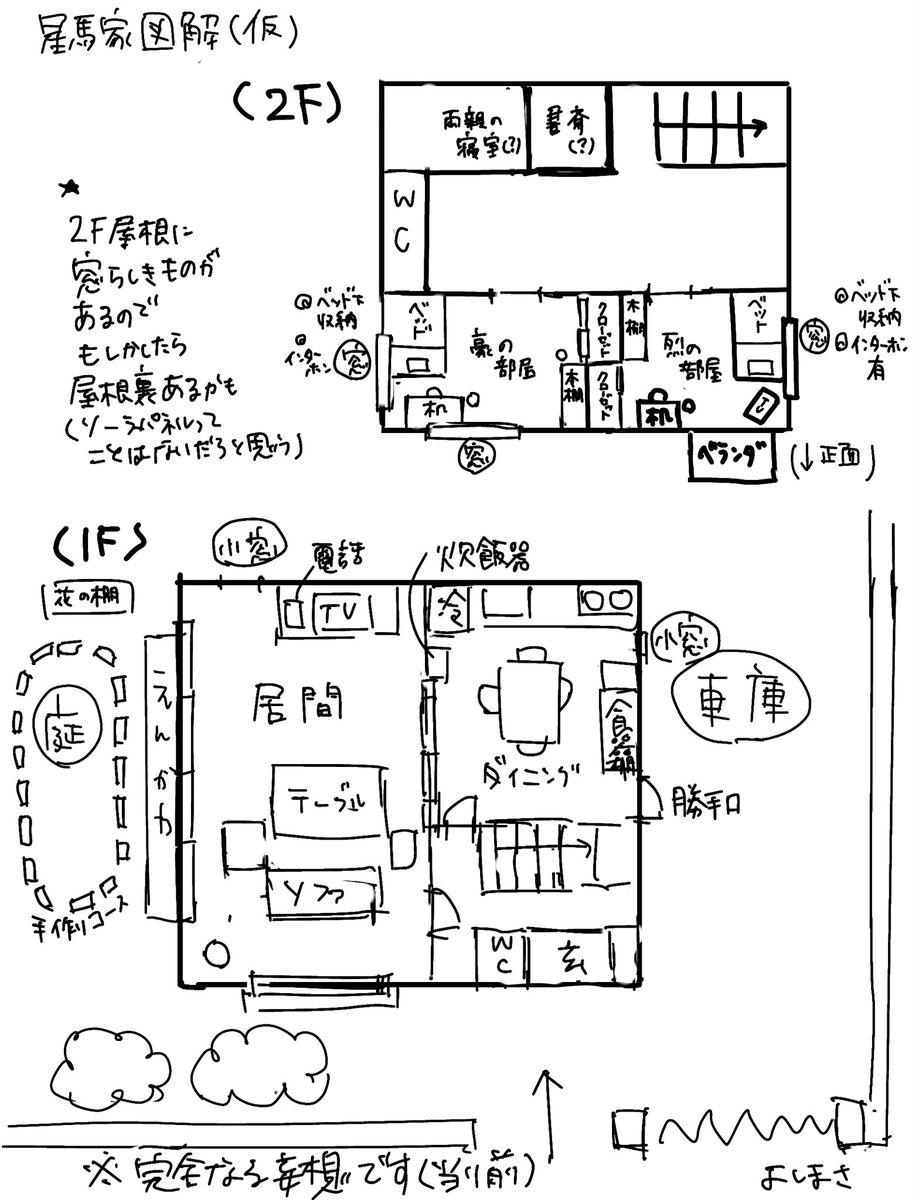 星馬家図解(仮)
(2F)
両親の
寝室(?)
書斎
(?)
WC
★
2F屋根に
窓らしきものが
あるので
もしかしたら
屋根裏あるかも
(ソーラパネルって
ことはないだろうと思う)
◎ベッド下
収納
◎インターホン
窓
ベッド
豪の
部屋
机
クローゼット
本棚
本棚
クローゼット
烈の
部屋
机
ベット
窓
◎ベッド下
収納
◎インターホン
有
窓
ベランダ
(↓正面)
(1F)
小窓
電話
炊飯器
花の棚
TV
冷
小窓
車庫
庭
えんがわ
居間
食器棚
ダイニング
テーブル
勝手口
ソファ
手作りコース
WC
玄
※完全なる妄想です(当り前)
よしまさ